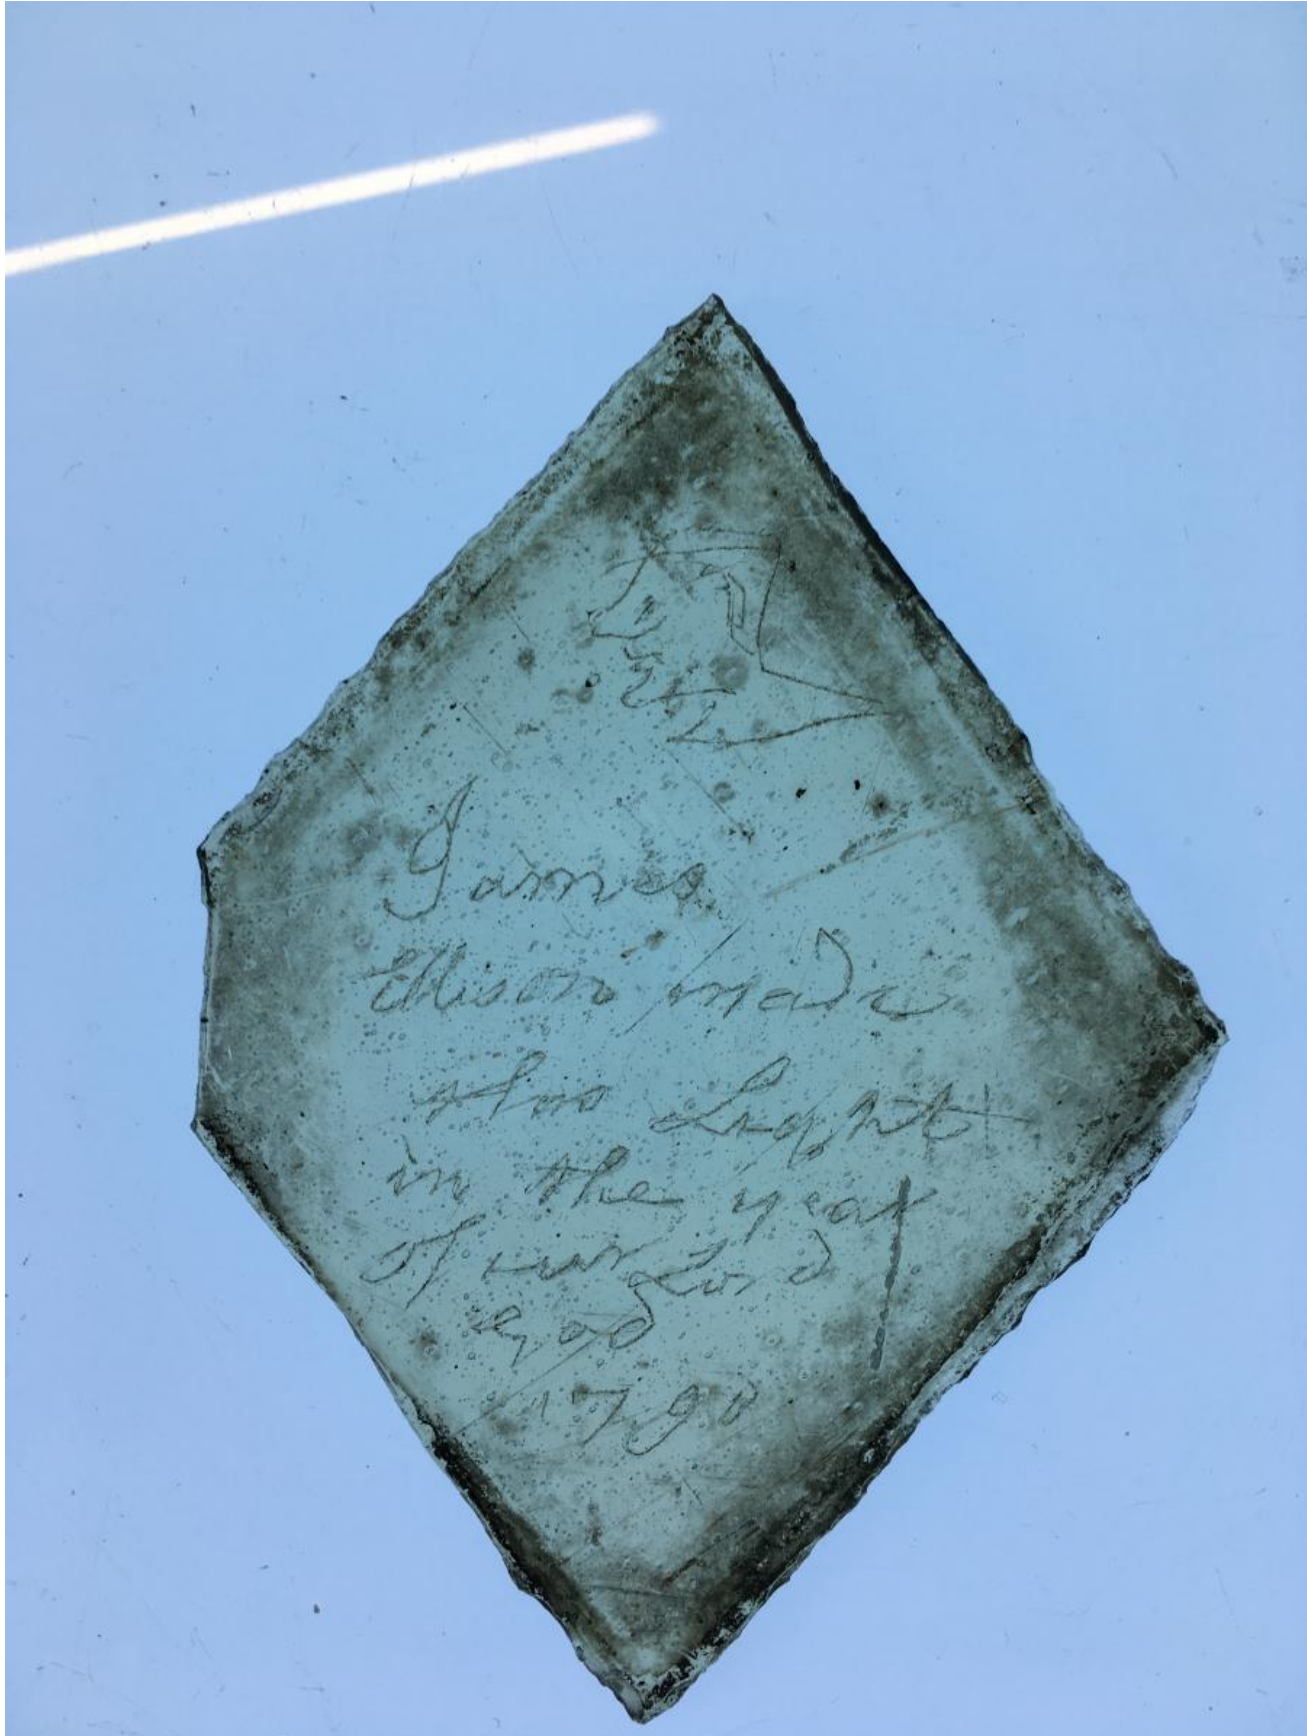 James
Ellison made
this Light
in the year
of our Lord
god
1790